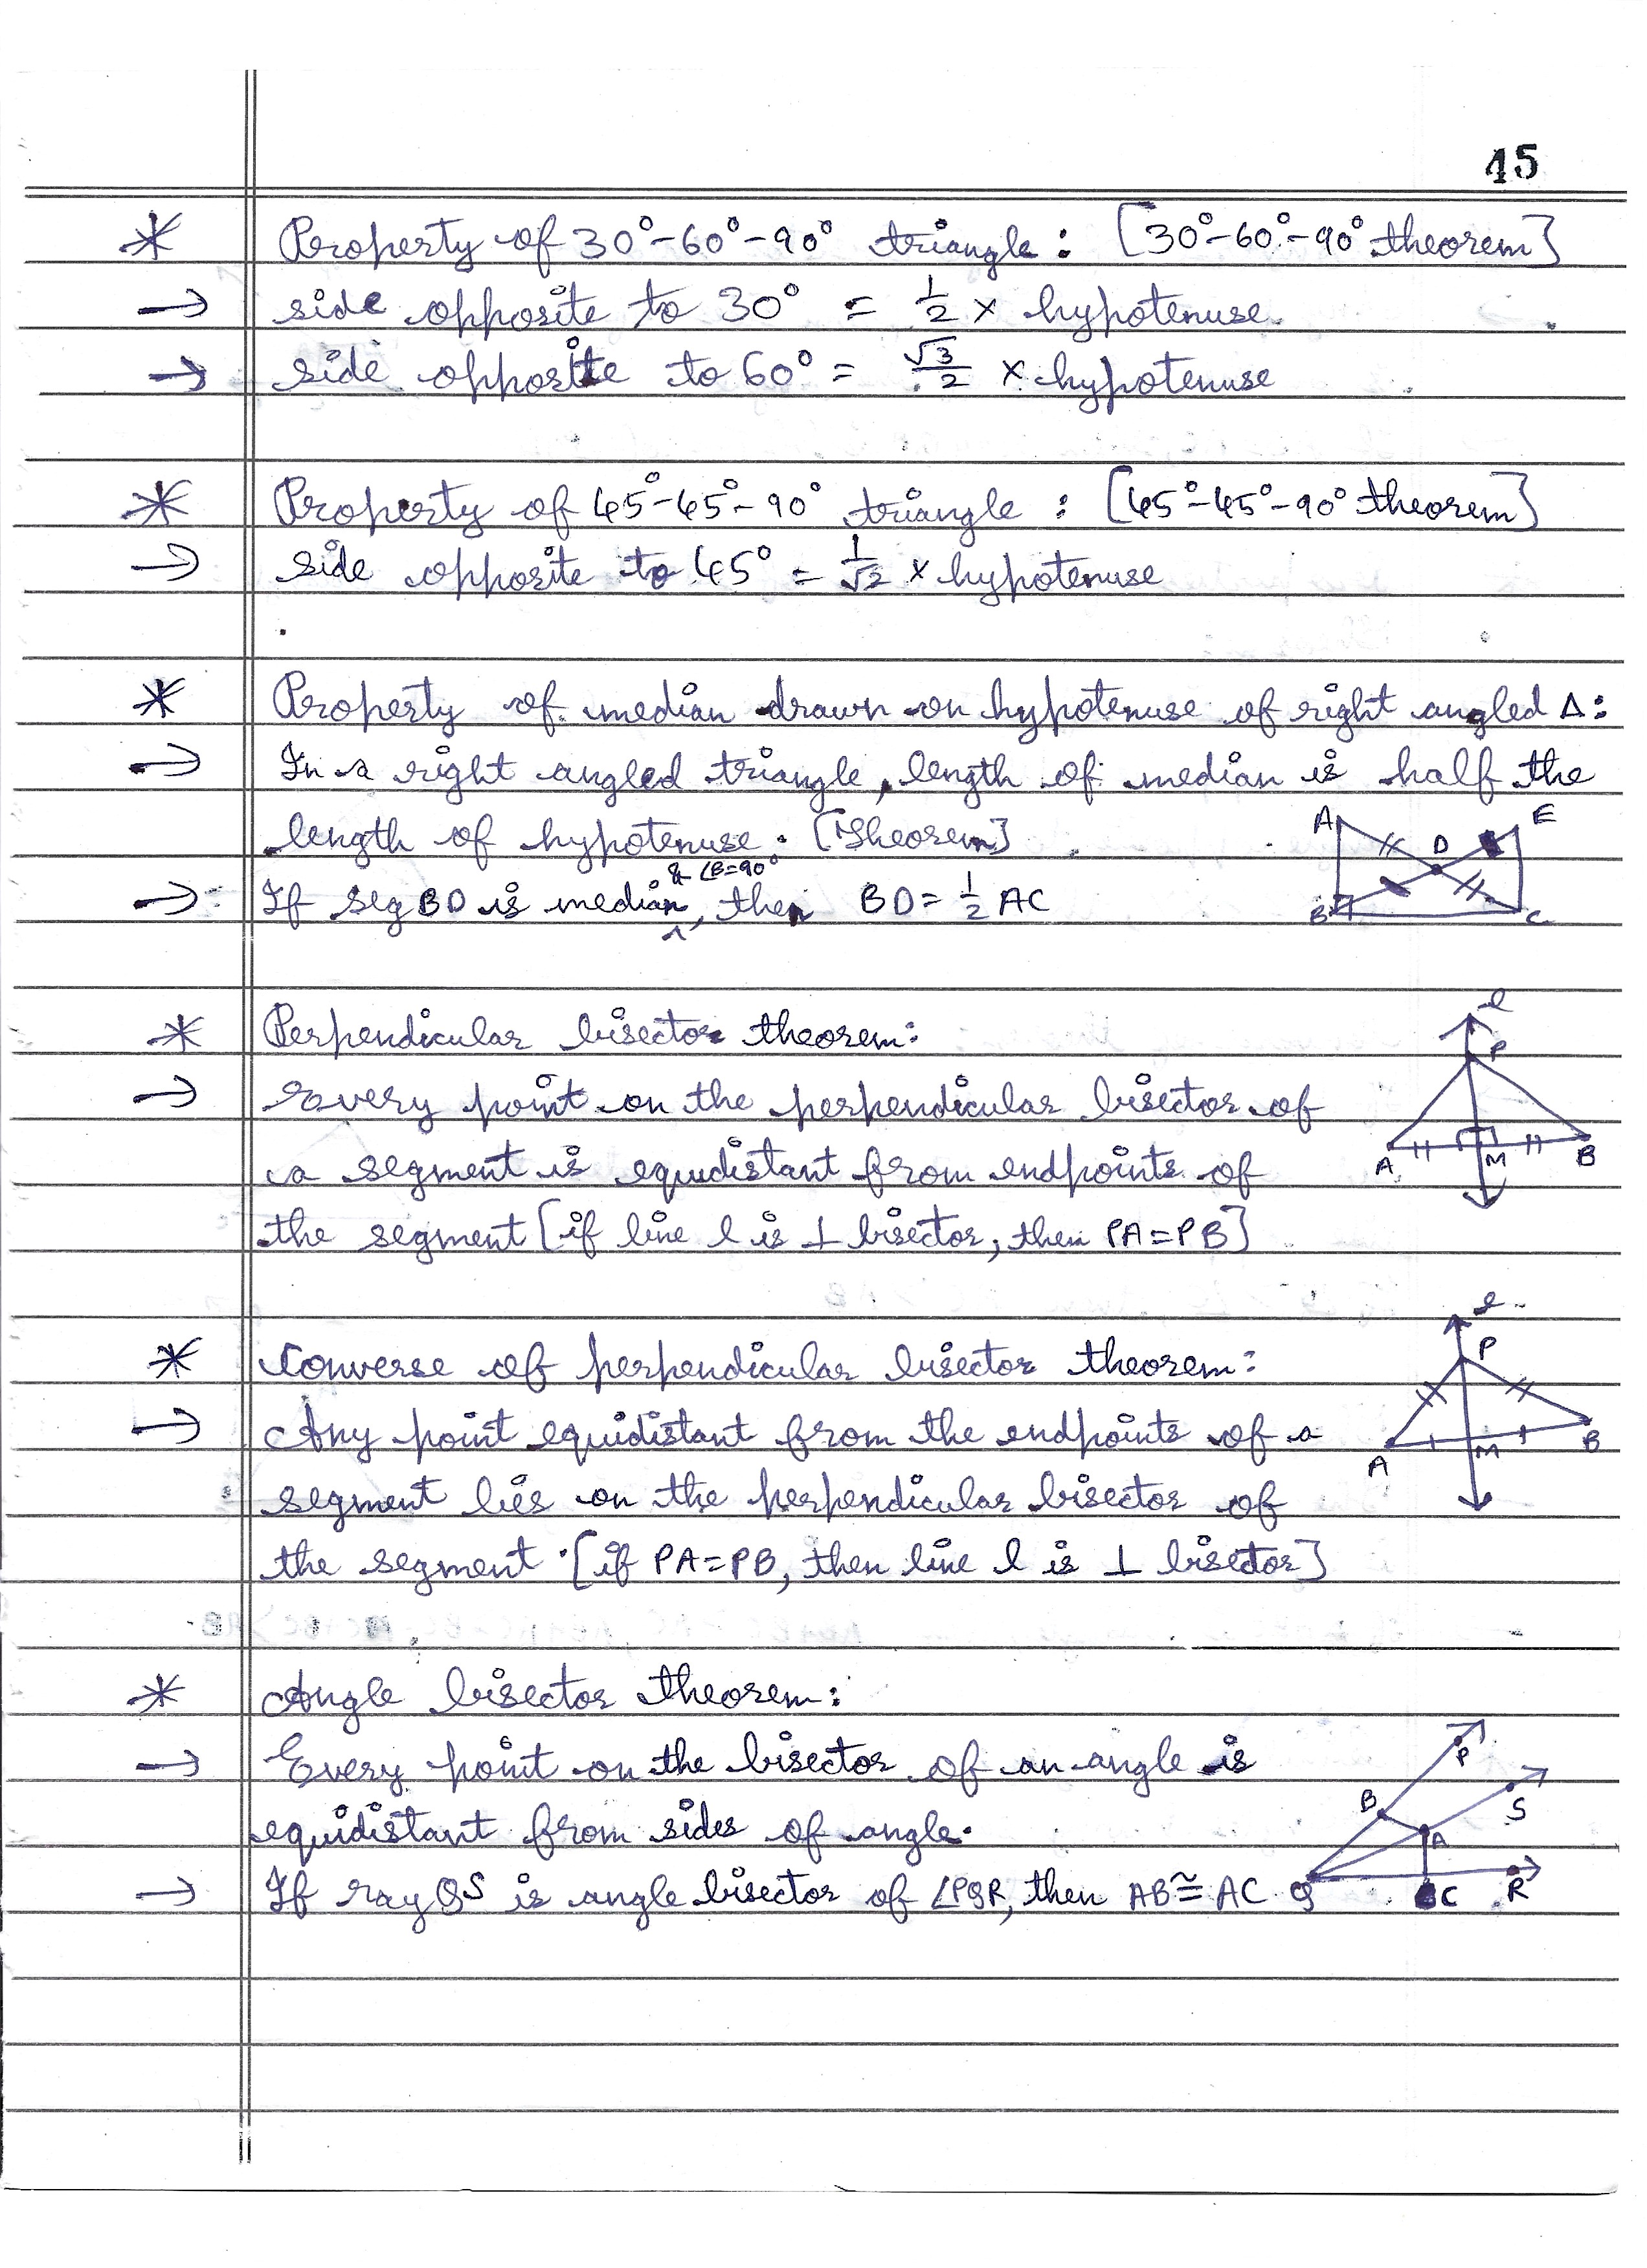 45
* Property of 30°-60°-90° triangle: [30°-60°-90° theorem]
→ side opposite to 30° = 1/2 × hypotenuse.
→ side opposite to 60° = √3/2 × hypotenuse
* Property of 45°-45°-90° triangle : [45°-45°-90° theorem]
→ side opposite to 45° = 1/√2 × hypotenuse
* Property of median drawn on hypotenuse of right angled Δ:
→ In a right angled triangle, length of median is half the
length of hypotenuse. [Theorem]
A E
D
B C
& ∠B=90°
→ If seg BD is median, then BD = 1/2 AC
l
* Perpendicular bisector theorem:
P
→ Every point on the perpendicular bisector of
a segment is equidistant from endpoints of
A M B
the segment [if line l is ⊥ bisector, then PA=PB]
l
* Converse of perpendicular bisector theorem:
P
→ Any point equidistant from the endpoints of a
A M B
segment lies on the perpendicular bisector of
the segment. [if PA=PB, then line l is ⊥ bisector]
* Angle bisector theorem:
→ Every point on the bisector of an angle is
P
B S
equidistant from sides of angle.
A
→ If ray QS is angle bisector of ∠PQR, then AB≅AC
Q C R